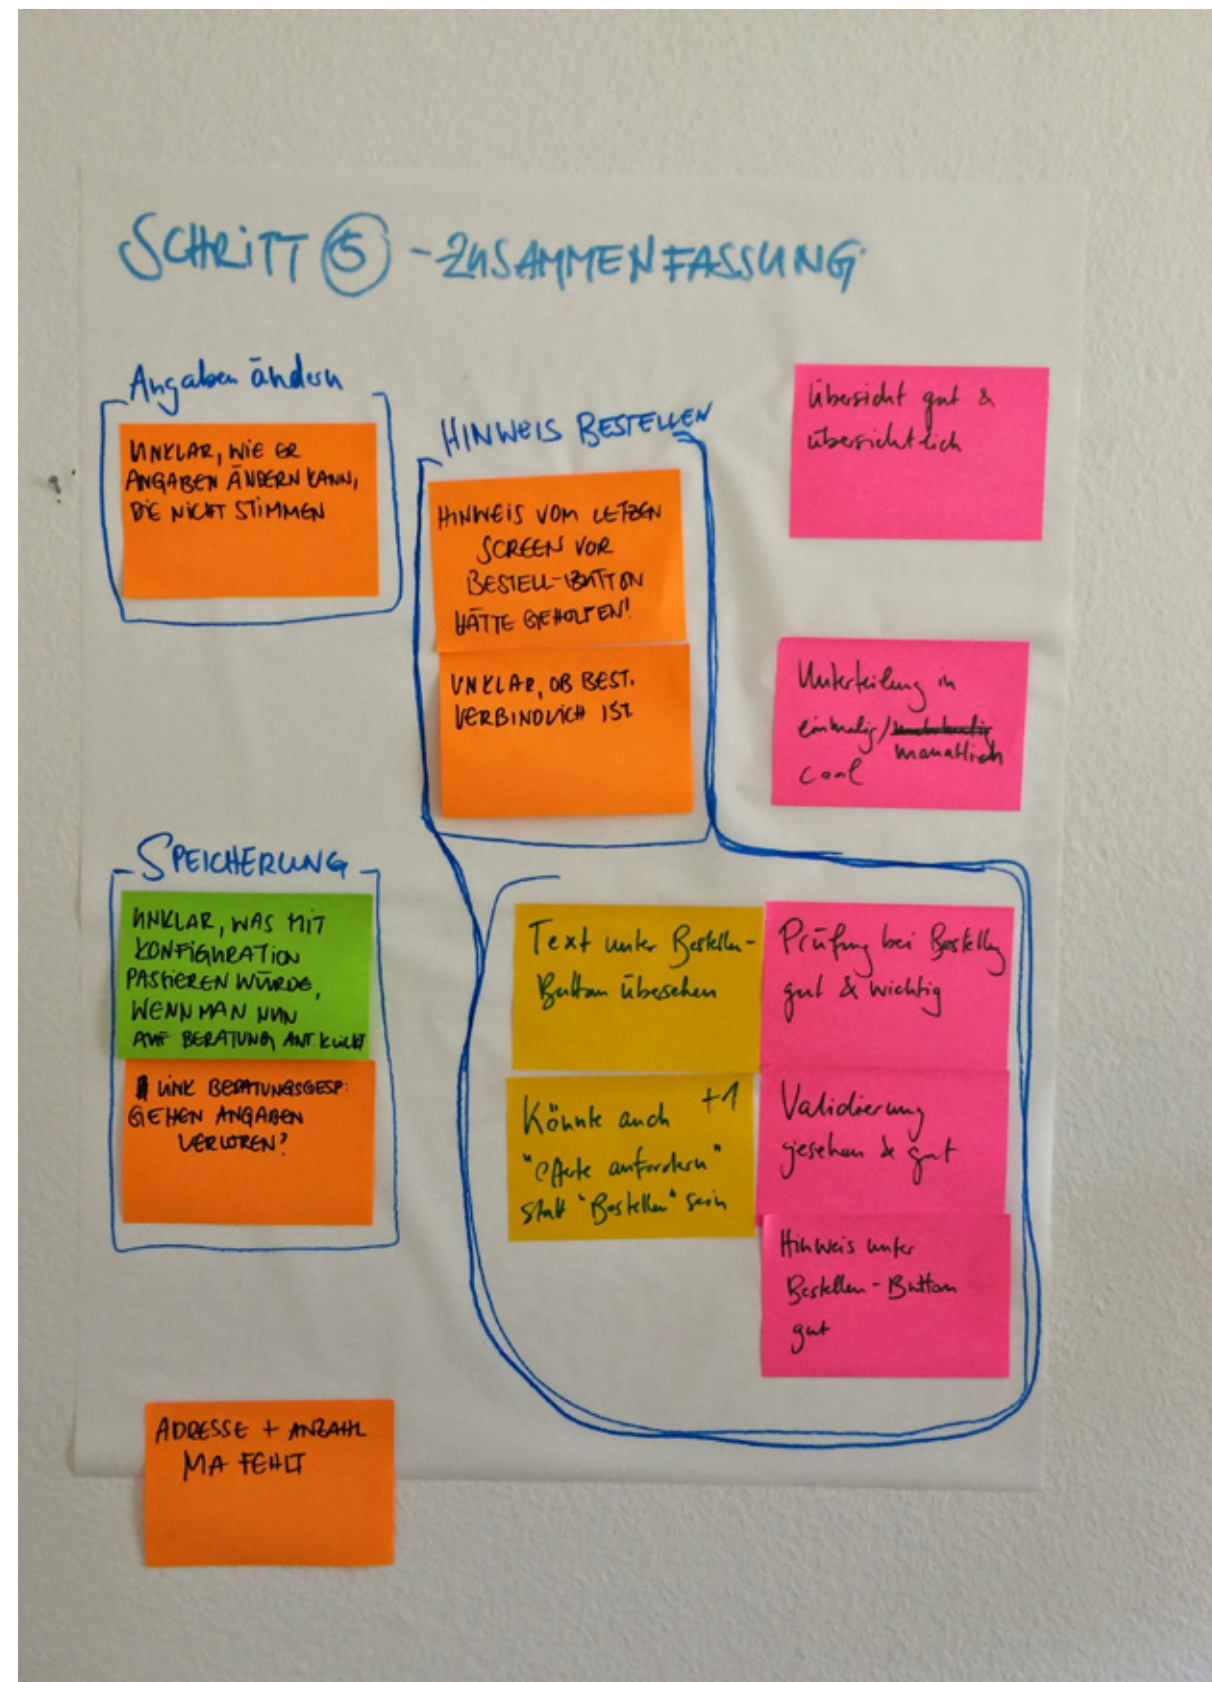 SCHRITT 5 - ZUSAMMENFASSUNG
Angaben ändern
UNKLAR, WIE ER
ANGABEN ÄNDERN KANN,
DIE NICHT STIMMEN
HINWEIS BESTELLEN
HINWEIS VOM LETZEN
SCREEN VOR
BESTELL-BUTTON
HÄTTE GEHOLFEN!
UNKLAR, OB BEST.
VERBINDLICH IST.
Übersicht gut &
übersichtlich
Unterteilung in
einmalig/
monatlich
cool
SPEICHERUNG
UNKLAR, WAS MIT
KONFIGURATION
PASSIEREN WÜRDE,
WENN MAN NUN
AUF BERATUNG ANT. KLICKT
LINK BERATUNGSGESP:
GEHEN ANGABEN
VERLOREN?
Text unter Bestellen-
Button übersehen
Prüfung bei Bestellg
gut & wichtig
Könnte auch +1
"Offerte anfordern"
statt "Bestellen" sein
Validierung
gesehen & gut
Hinweis unter
Bestellen-Button
gut
ADRESSE + ANZAHL
MA FEHLT